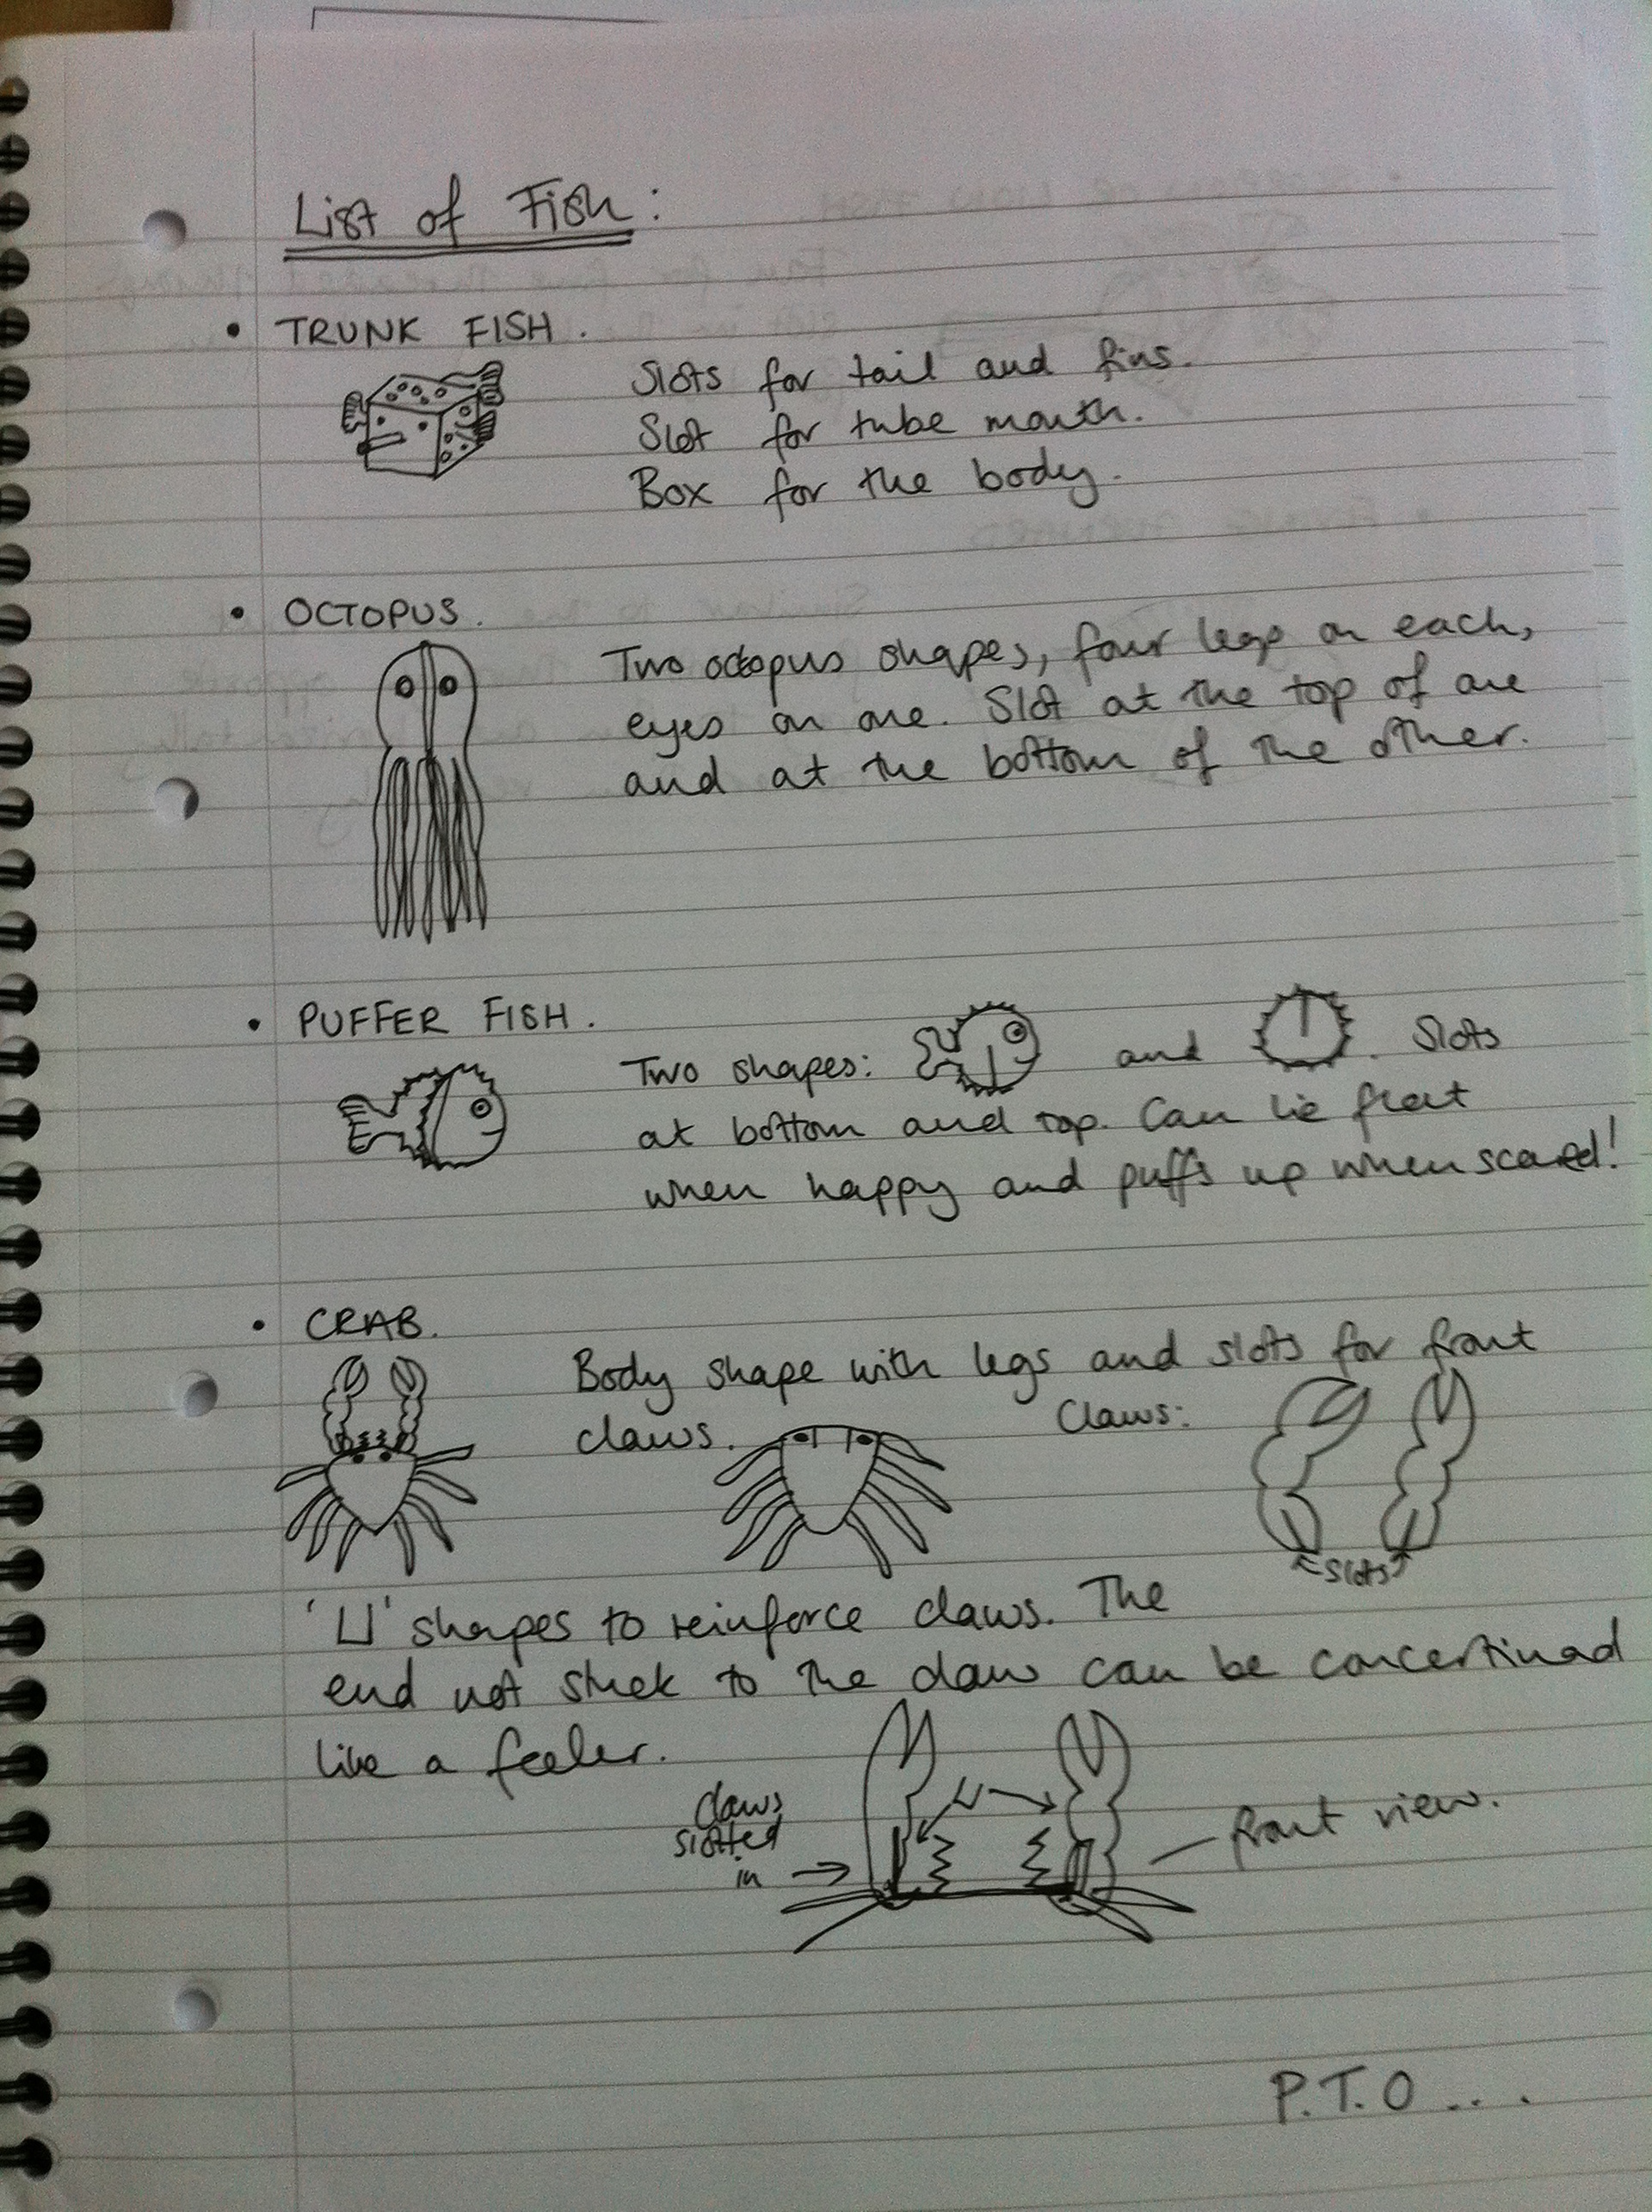 List of Fish:
• TRUNK FISH.
Slots for tail and fins.
Slot for tube mouth.
Box for the body.
• OCTOPUS.
Two octopus shapes, four legs on each,
eyes on one. Slot at the top of one
and at the bottom of the other.
• PUFFER FISH.
Two shapes: and . Slots
at bottom and top. Can lie flat
when happy and puffs up when scared!
• CRAB.
Body shape with legs and slots for front
claws.
Claws:
←slots→
'U' shapes to reinforce claws. The
end not stuck to the claw can be concertinad
like a feeler.
Claws
slotted
in →
U
front view.
P.T.O...